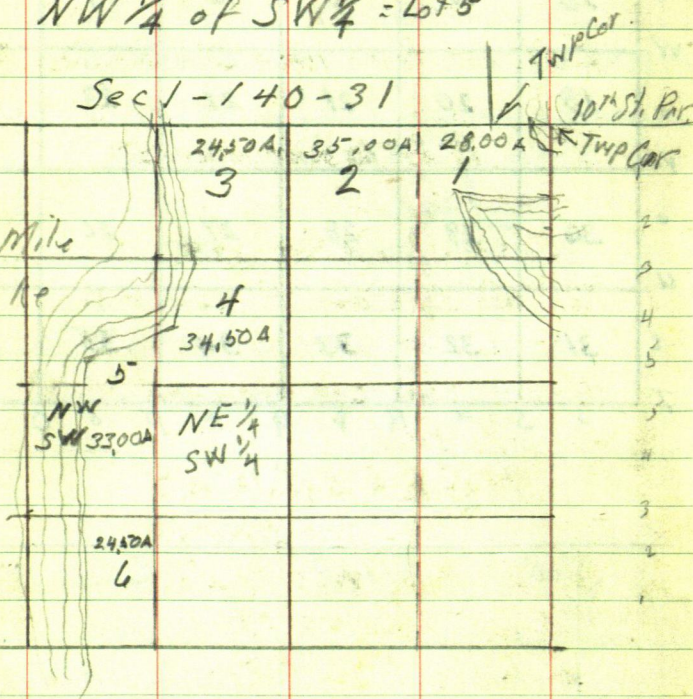 NW 1/4 of SW 1/4 = Lot 5
Twp Cor.
Sec 1-140-31
10th St. Par.
Twp Cor
24,50A. 35,00A 28.00A
3 2 1
Mile
4
34,50A
5
NW
SW 33,00A
NE 1/4
SW 1/4
24,50A
6
2
3
4
5
5
4
3
2
1